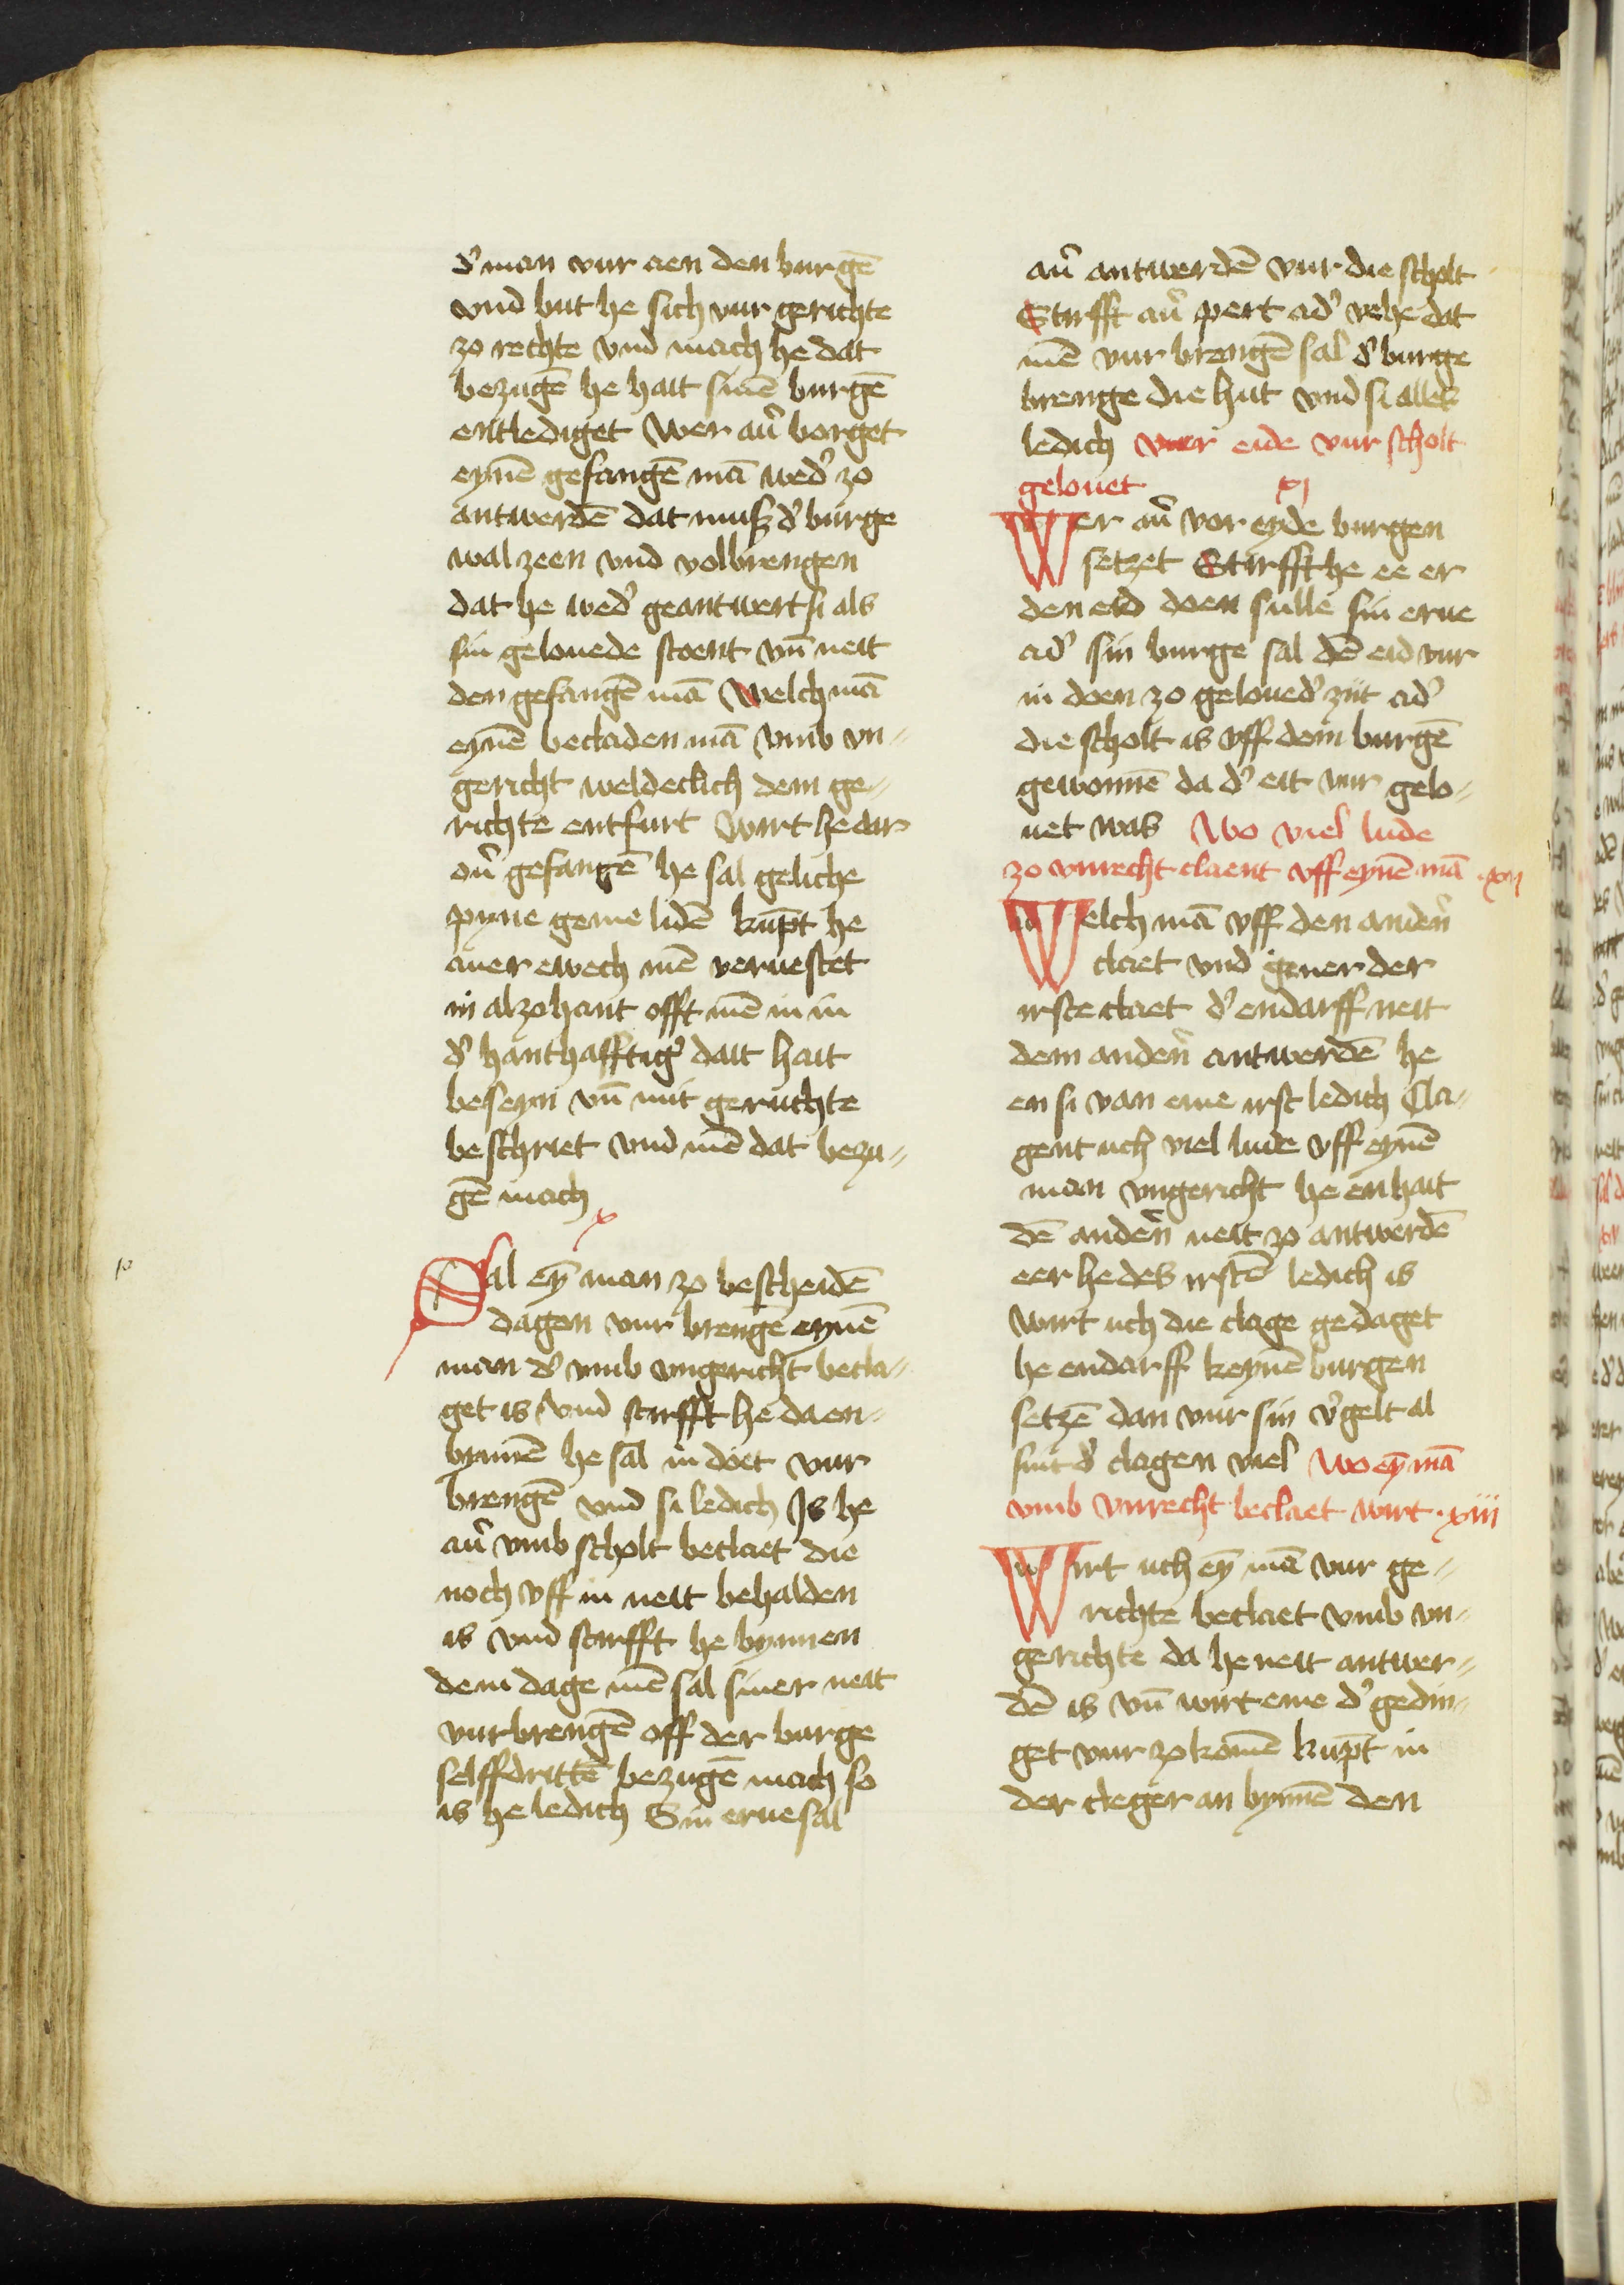 d' man vur aen den burgē
vnd but he sich vur gerichte
zo rechte vnd mach he dat
bezugē he hait sinē burgē
entlediget Wer aů borget
eynē gefangē mā wed' zo
antwerdē dat muß d' burge
wal zeen vnd volbrengen
dat he wed' geantwert si als
sin gelouede stoent vn̄ neit
den gefangē mā Welch mā
eynē becladen mā vmb vn=
gericht weldeclich dem ge=
richte entfurt Wirt he dar
ou' gefangē he sal geliche
pyne geme lidē kūpt he
auer ewech mē veruestet
in alzohant offt mē in in
d' hanthafftig' dait hait
beseyn vn̄ mit geruchte
beschriet vnd mē dat bezu=
gē mach
x
Sal eȳ man zo bescheidē
dagen vur brengē eynē
man d' vmb vngericht becla=
get is vnd stirfft he daen=
bynnē he sal in doet vur
brengē vnd si ledich Js he
aů vmb scholt beclaet die
noch vff in neit behalden
is vnd stirfft he bynnen
dem dage mē sal siner neit
vurbrengē off der burge
selffdrittē bezugē mach so
is he ledich Sin erue sal
aů antwerdē vur die scholt
Stirfft aů pert ad' vehe dat
mē vur brengē sal d' burge
brenge die hut vnd si alles
ledich Wer eide vur scholt
gelouet xj
Wer aů vor eyde burgen
setzet Stirfft he ee er
den eid doen sulle sin erue
ad' sin burge sal dē eid vur
in doen zo geloued' zijt ad'
die scholt is vff dem burgē
gewonnē da d' eit vur gelo=
uet was Wo viel lude
zo vnrecht claent vff eynē mā xij
Welch mā vff den anderē
claet vnd gener der
irste claet d' endarff neit
dem anderē antwerdē he
en si van eme irst ledich Cla=
gent uch viel lude vff eynē
man vngericht he en hait
dē anderē neit zo antwerdē
eer he des irstē ledich is
Wirt uch die clage gedaget
he endarff keynē burgen
setzē dan vur sin v'gelt al
sint d' clagen viel Wo eȳ mā
vmb vnrecht beclaet wirt xiii
Wirt uch eȳ mā vur ge=
richte beclaet vmb vn=
gerichte da he neit antwer=
dē is vn̄ wirt eme d' gedin=
get vur zo komē kūpt in
der cleger an bynnē den